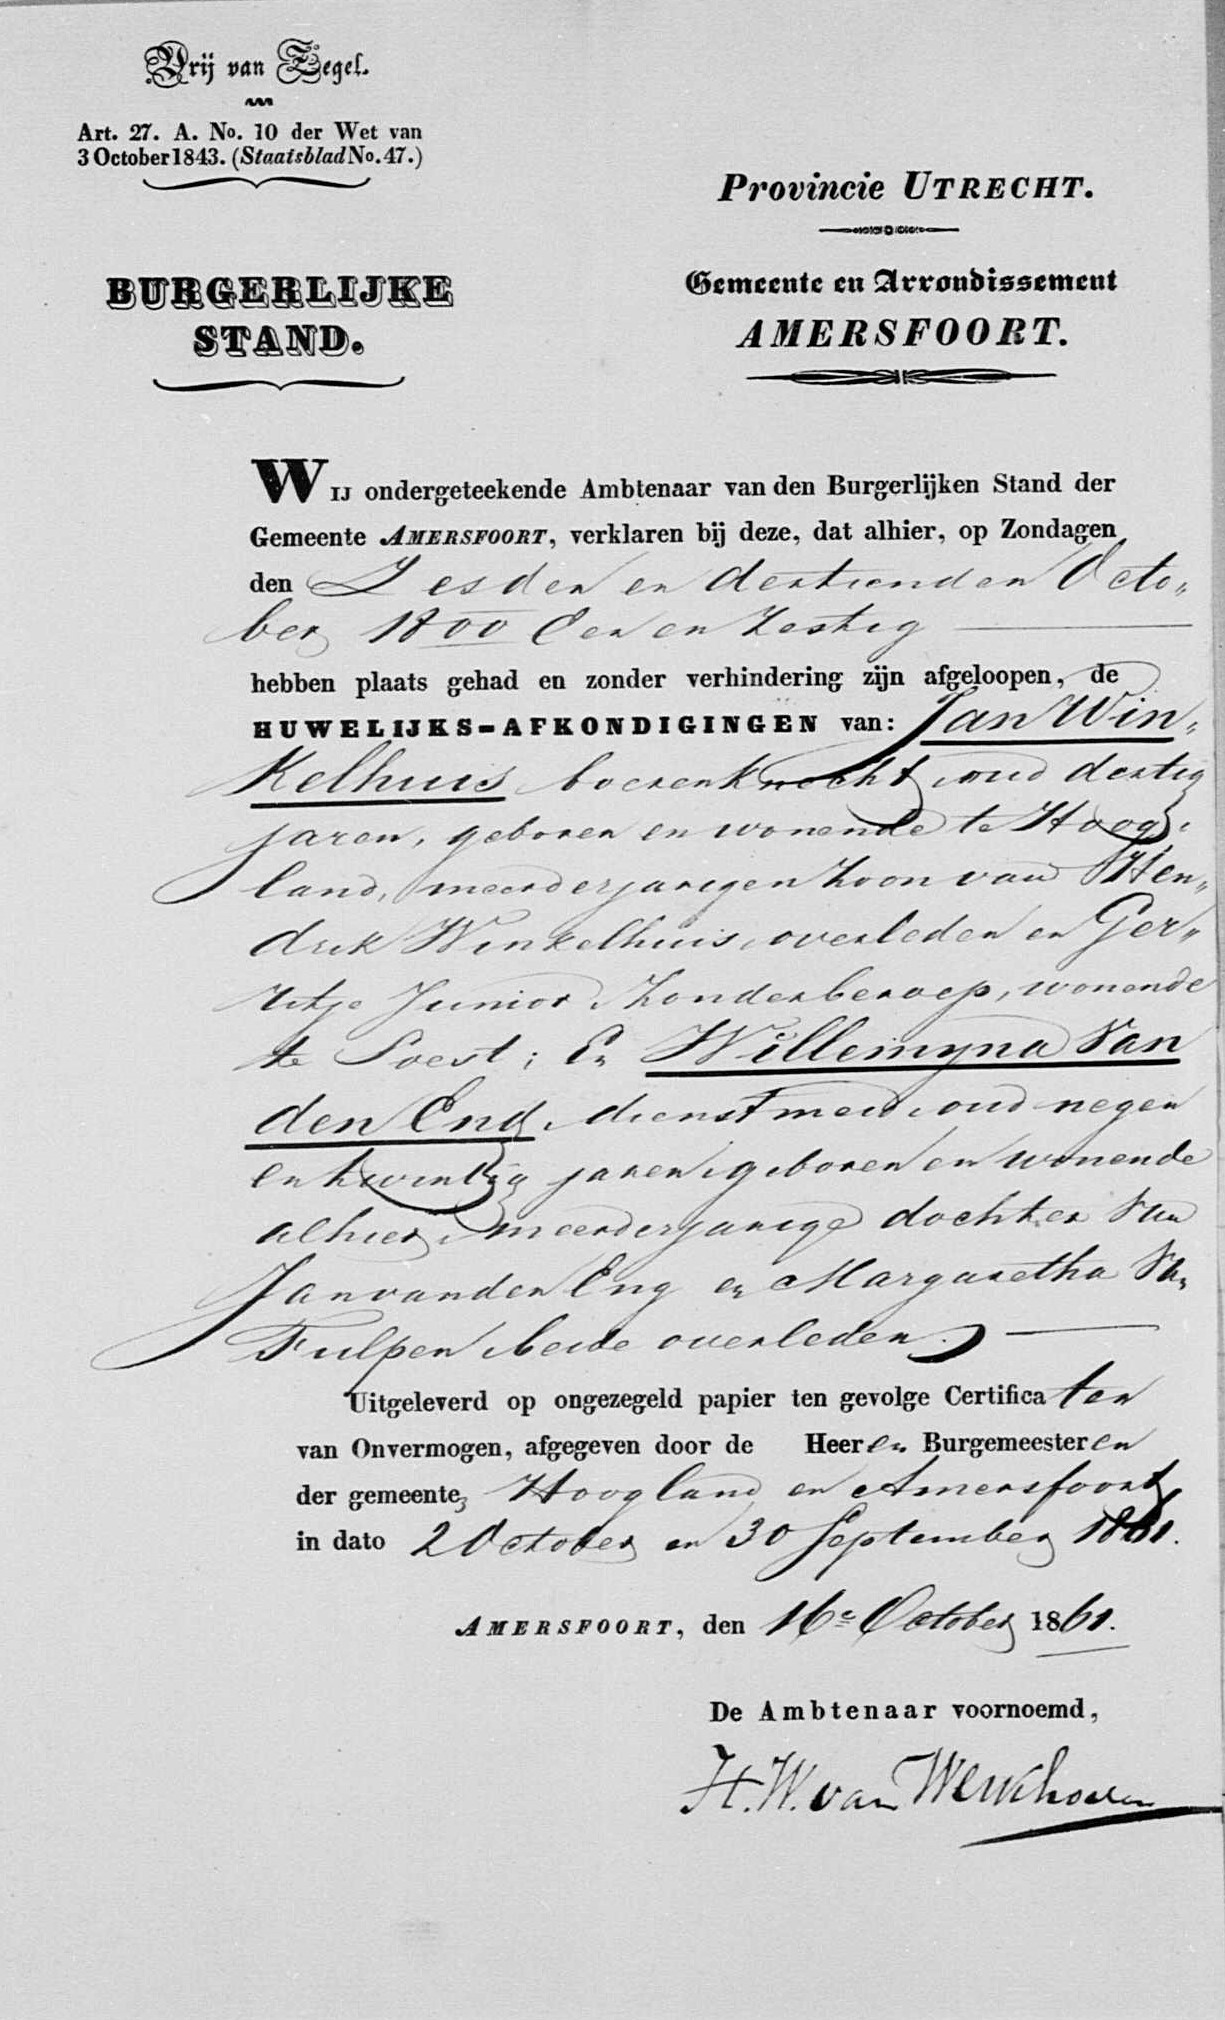 Vrij van Zegel.
Art. 27. A. No. 10 der Wet van
3 October 1843. (Staatsblad No. 47.)
BURGERLIJKE
STAND.
Provincie UTRECHT.
Gemeente en Arrondissement
AMERSFOORT.
WIJ ondergeteekende Ambtenaar van den Burgerlijken Stand der
Gemeente AMERSFOORT, verklaren bij deze, dat alhier, op Zondagen
den Zesden en dertienden Octo„
ber 1800 Een en Zestig
hebben plaats gehad en zonder verhindering zijn afgeloopen, de
HUWELIJKS-AFKONDIGINGEN van: Jan Win„
kelhuis boerenknecht, oud dertig
jaren, geboren en wonende te Hoog„
land, meerderjarigen zoon van Hen„
drik Winkelhuis, overleden en Ger„
ritje Junior, zonder beroep, wonende
te Soest; En Willemyna Van
den Eng, dienstmeid, oud negen
en twintig jaren, geboren en wonende
alhier, meerderjarige dochter van
Jan van den Eng en Margaretha van
Tulpen, beide overleden.
Uitgeleverd op ongezegeld papier ten gevolge Certificaten
van Onvermogen, afgegeven door de Heeren Burgemeesteren
der gemeente Hoogland en Amersfoort
in dato 2 October en 30 September 1861.
AMERSFOORT, den 16e October 1861.
De Ambtenaar voornoemd,
H. W. van Werkhoven